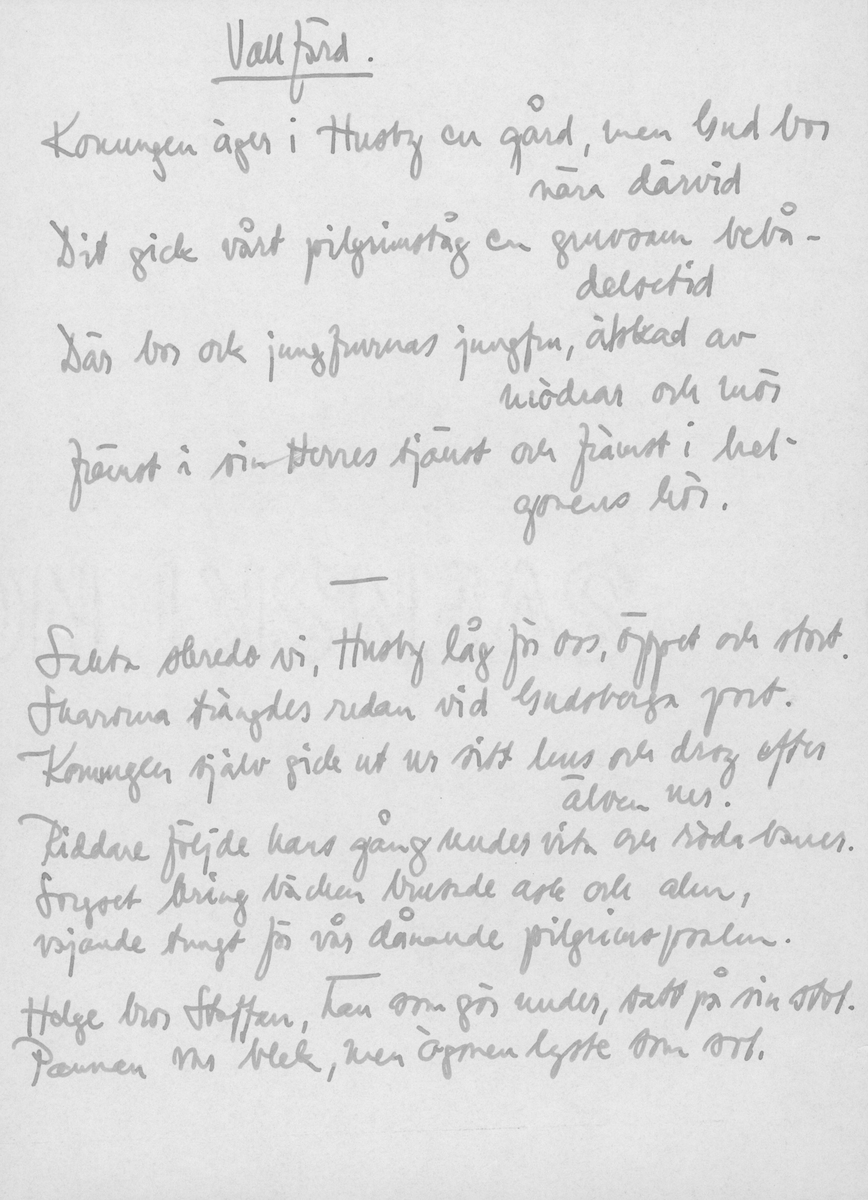 Vallfärd.
Konungen äger i Husby en gård, men Gud bor
nära därvid
Dit gick vårt pilgrimståg en gruvsam bebå-
delsetid
Där bor ock jungfrurnas jungfru, älskad av
mödrar och mör
främst i sin Herres tjänst och främst i hel-
gonens kör.
—
Sakta skredo vi, Husby låg för oss, öppet och stort.
Skarorna trängdes redan vid Gudsberga port.
Konungen själv gick ut ur sitt hus och drog efter
älven ner.
Riddare följde hans gång under vita och röda baner.
Sorgset kring bäcken brusade ask och alm,
vajande tungt för vår dånande pilgrimspsalm.
Helge bror Staffan, han som gör under, satt på sin stol.
Pannan var blek, men ögonen lyste som sol.